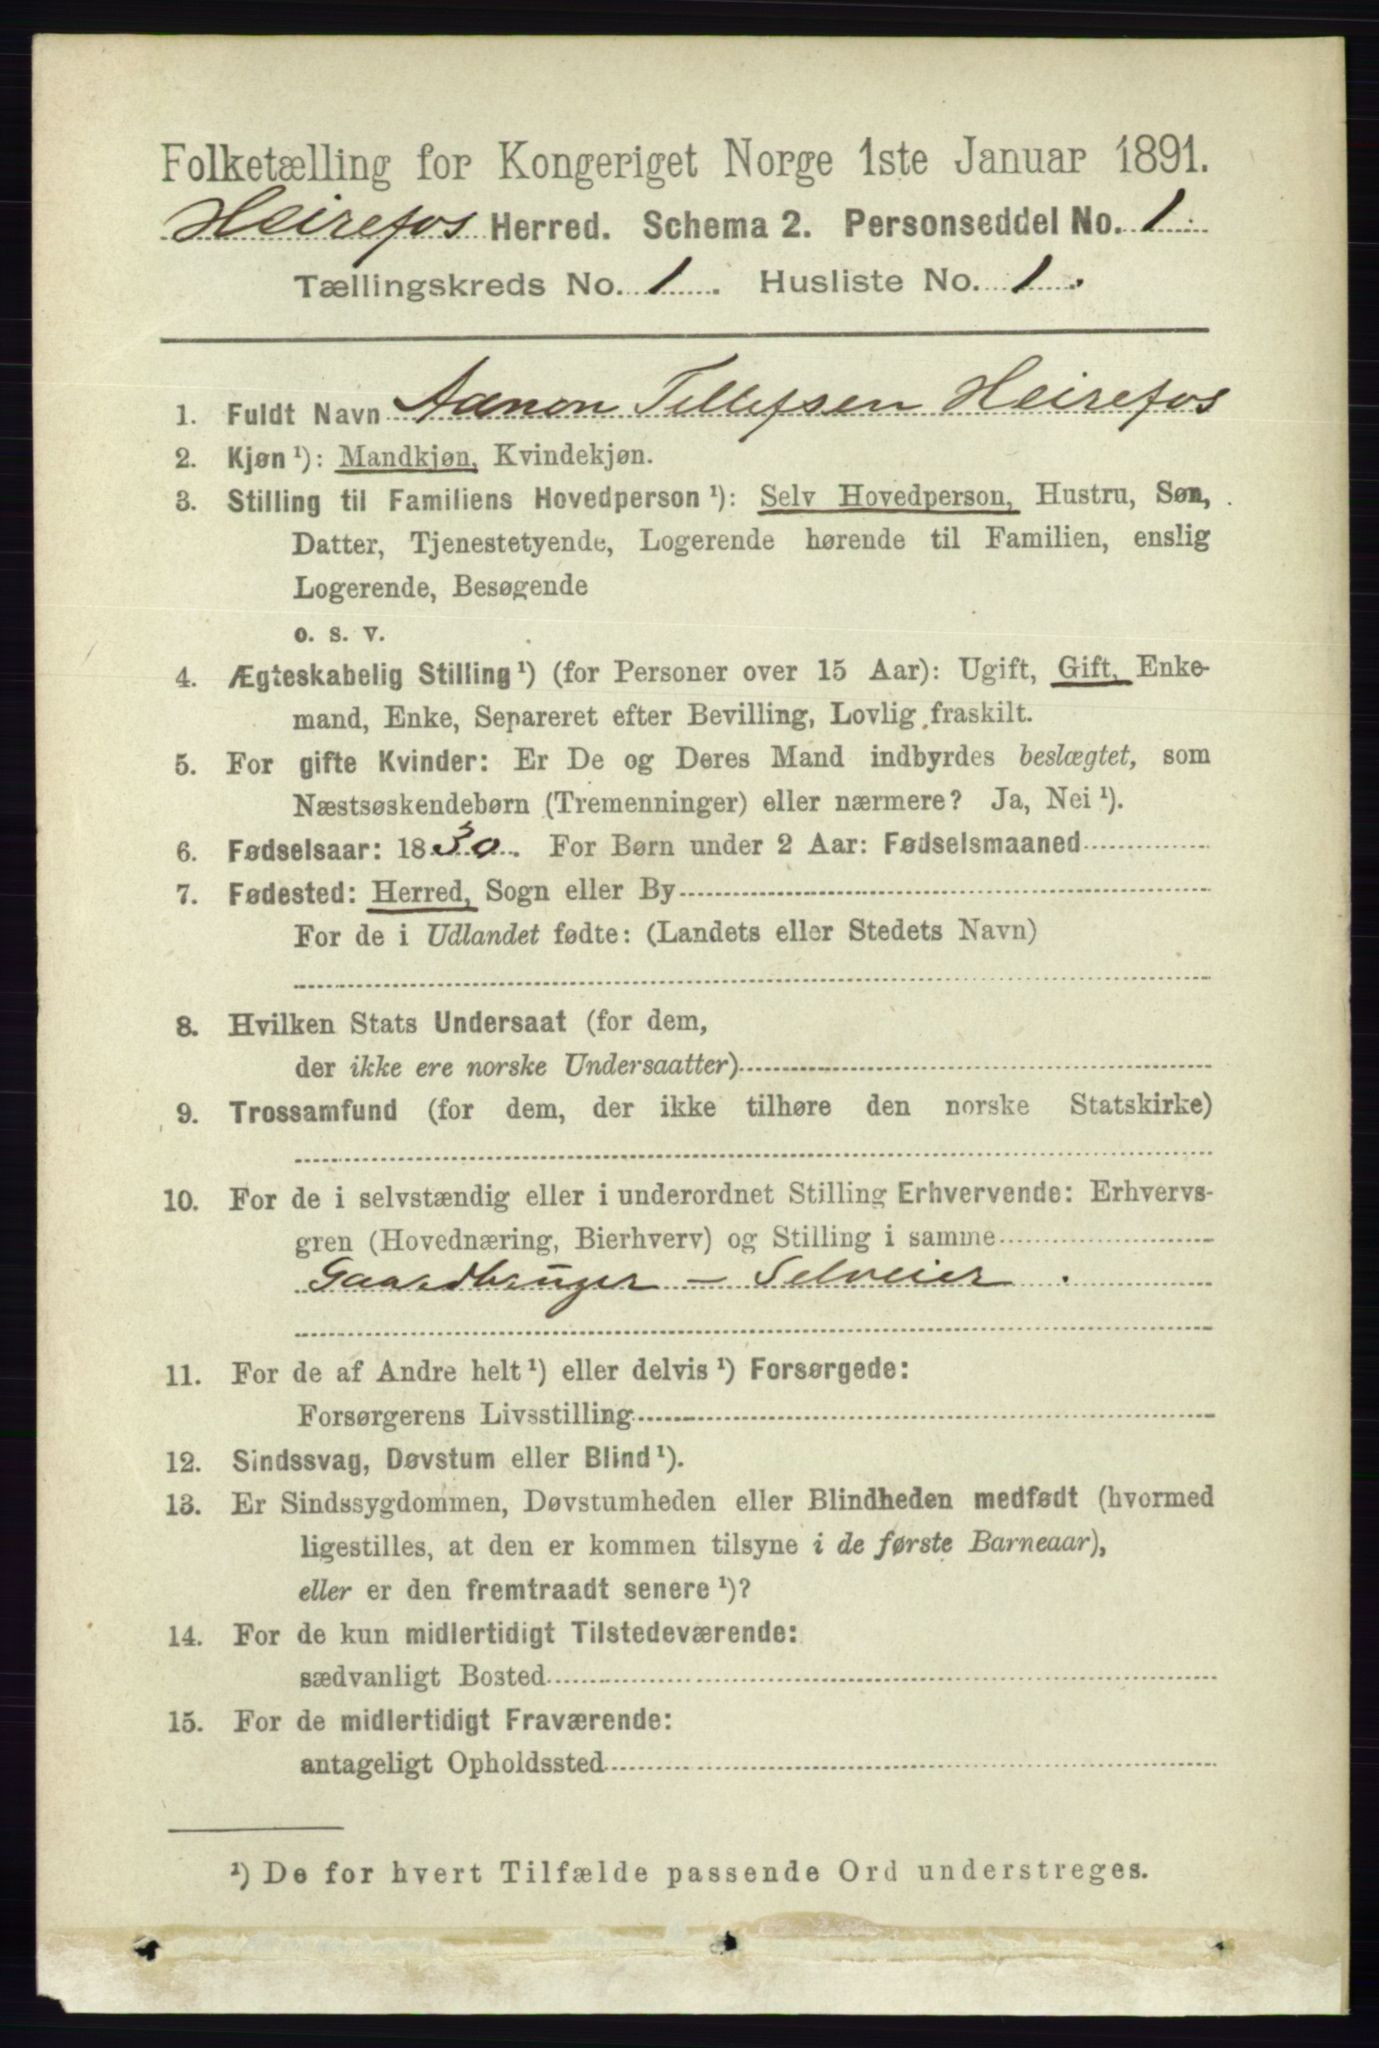 Folketælling for Kongeriget Norge 1ste Januar 1891.
Heirefos Herred. Schema 2. Personseddel No. 1
Tællingskreds No. 1. Husliste No. 1.
1. Fuldt Navn Aanon Tellefsen Heirefos
2. Kjøn ¹): Mandkjøn, Kvindekjøn.
3. Stilling til Familiens Hovedperson ¹): Selv Hovedperson, Hustru, Søn,
Datter, Tjenestetyende, Logerende hørende til Familien, enslig
Logerende, Besøgende
o. s. v.
4. Ægteskabelig Stilling ¹) (for Personer over 15 Aar): Ugift, Gift, Enke-
mand, Enke, Separeret efter Bevilling, Lovlig fraskilt.
5. For gifte Kvinder: Er De og Deres Mand indbyrdes beslægtet, som
Næstsøskendebørn (Tremenninger) eller nærmere? Ja, Nei ¹).
6. Fødselsaar: 1830. For Børn under 2 Aar: Fødselsmaaned
7. Fødested: Herred, Sogn eller By
For de i Udlandet fødte: (Landets eller Stedets Navn)
8. Hvilken Stats Undersaat (for dem,
der ikke ere norske Undersaatter)
9. Trossamfund (for dem, der ikke tilhøre den norske Statskirke)
10. For de i selvstændig eller i underordnet Stilling Erhvervende: Erhvervs-
gren (Hovednæring, Bierhverv) og Stilling i samme
Gaardbruger - Selveier.
11. For de af Andre helt ¹) eller delvis ¹) Forsørgede:
Forsørgerens Livsstilling
12. Sindssvag, Døvstum eller Blind ¹).
13. Er Sindssygdommen, Døvstumheden eller Blindheden medfødt (hvormed
ligestilles, at den er kommen tilsyne i de første Barneaar),
eller er den fremtraadt senere ¹)?
14. For de kun midlertidigt Tilstedeværende:
sædvanligt Bosted
15. For de midlertidigt Fraværende:
antageligt Opholdssted
¹) De for hvert Tilfælde passende Ord understreges.